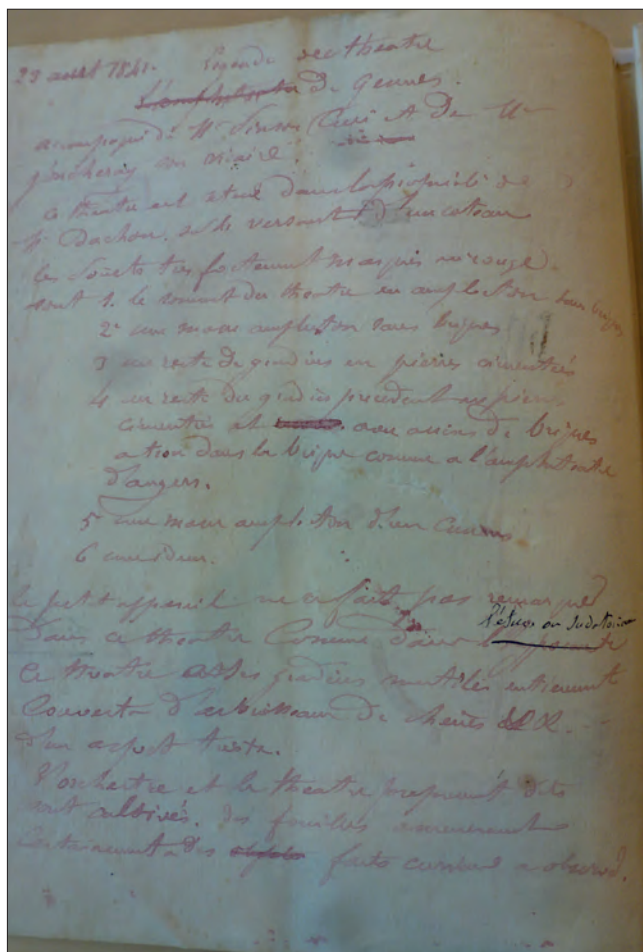 23 aout 1841. Légende du theatre
l'amphiteatre de Gennes.
accompagné de Mr Curé et De Mr
son
ce theatre est situé dans la propriété de
Mr Dachon, sur le versant d'un coteau
les Points très fortement marqués au rouge
sont 1. le sommet du theatre en amplecton sans briques
2 une masse amplecton sans briques
3 un reste de gradins en pierres cimentées
4 un reste du gradin precedent en pierres
cimentées et avec assises de briques
ation dans la brique comme a l'amphiteatre
d'angers.
5 une masse amplecton d'un Cuneus
6 une idem.
le petit appareil ne se fait pas remarquer
Dans ce theatre Comme dans l'étuve ou sudatorium
Ce theatre a ses gradins mutilés entierement
Couverts d'arbrisseaux de chenes &&.
d'un aspect triste.
l'orchestre et le theatre proprement dits
sont cultivés. des fouilles ameneraient
Certainement a des faits curieux a observer.